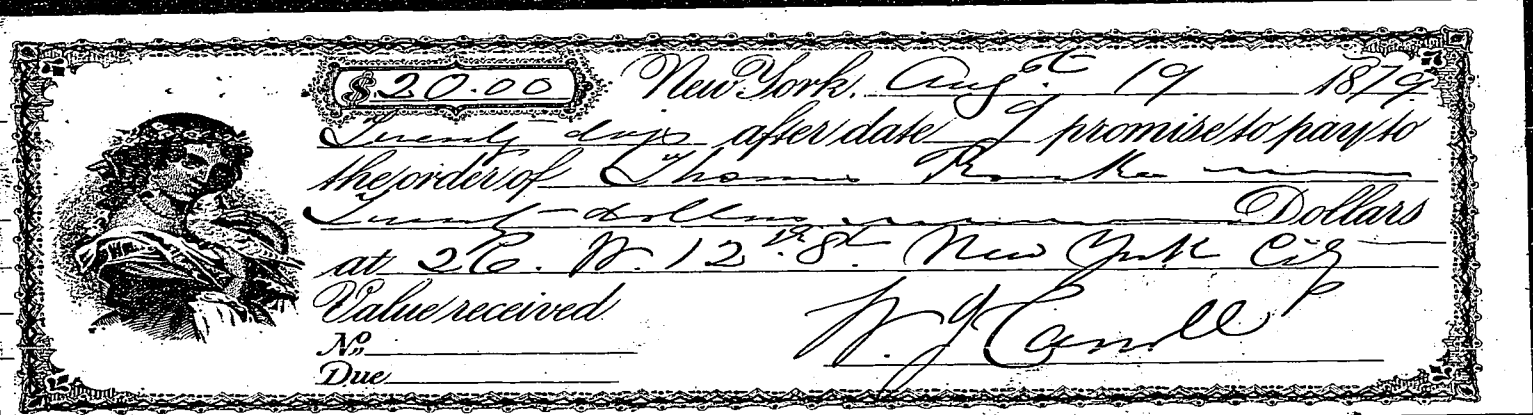 $20.00 New York, Augst 19 1879
Twenty days after date I promise to pay to
the order of Thomas Rourke
Twenty dollars Dollars
at 26. W. 12th St New York City
Value received W. J. Carroll
No.
Due